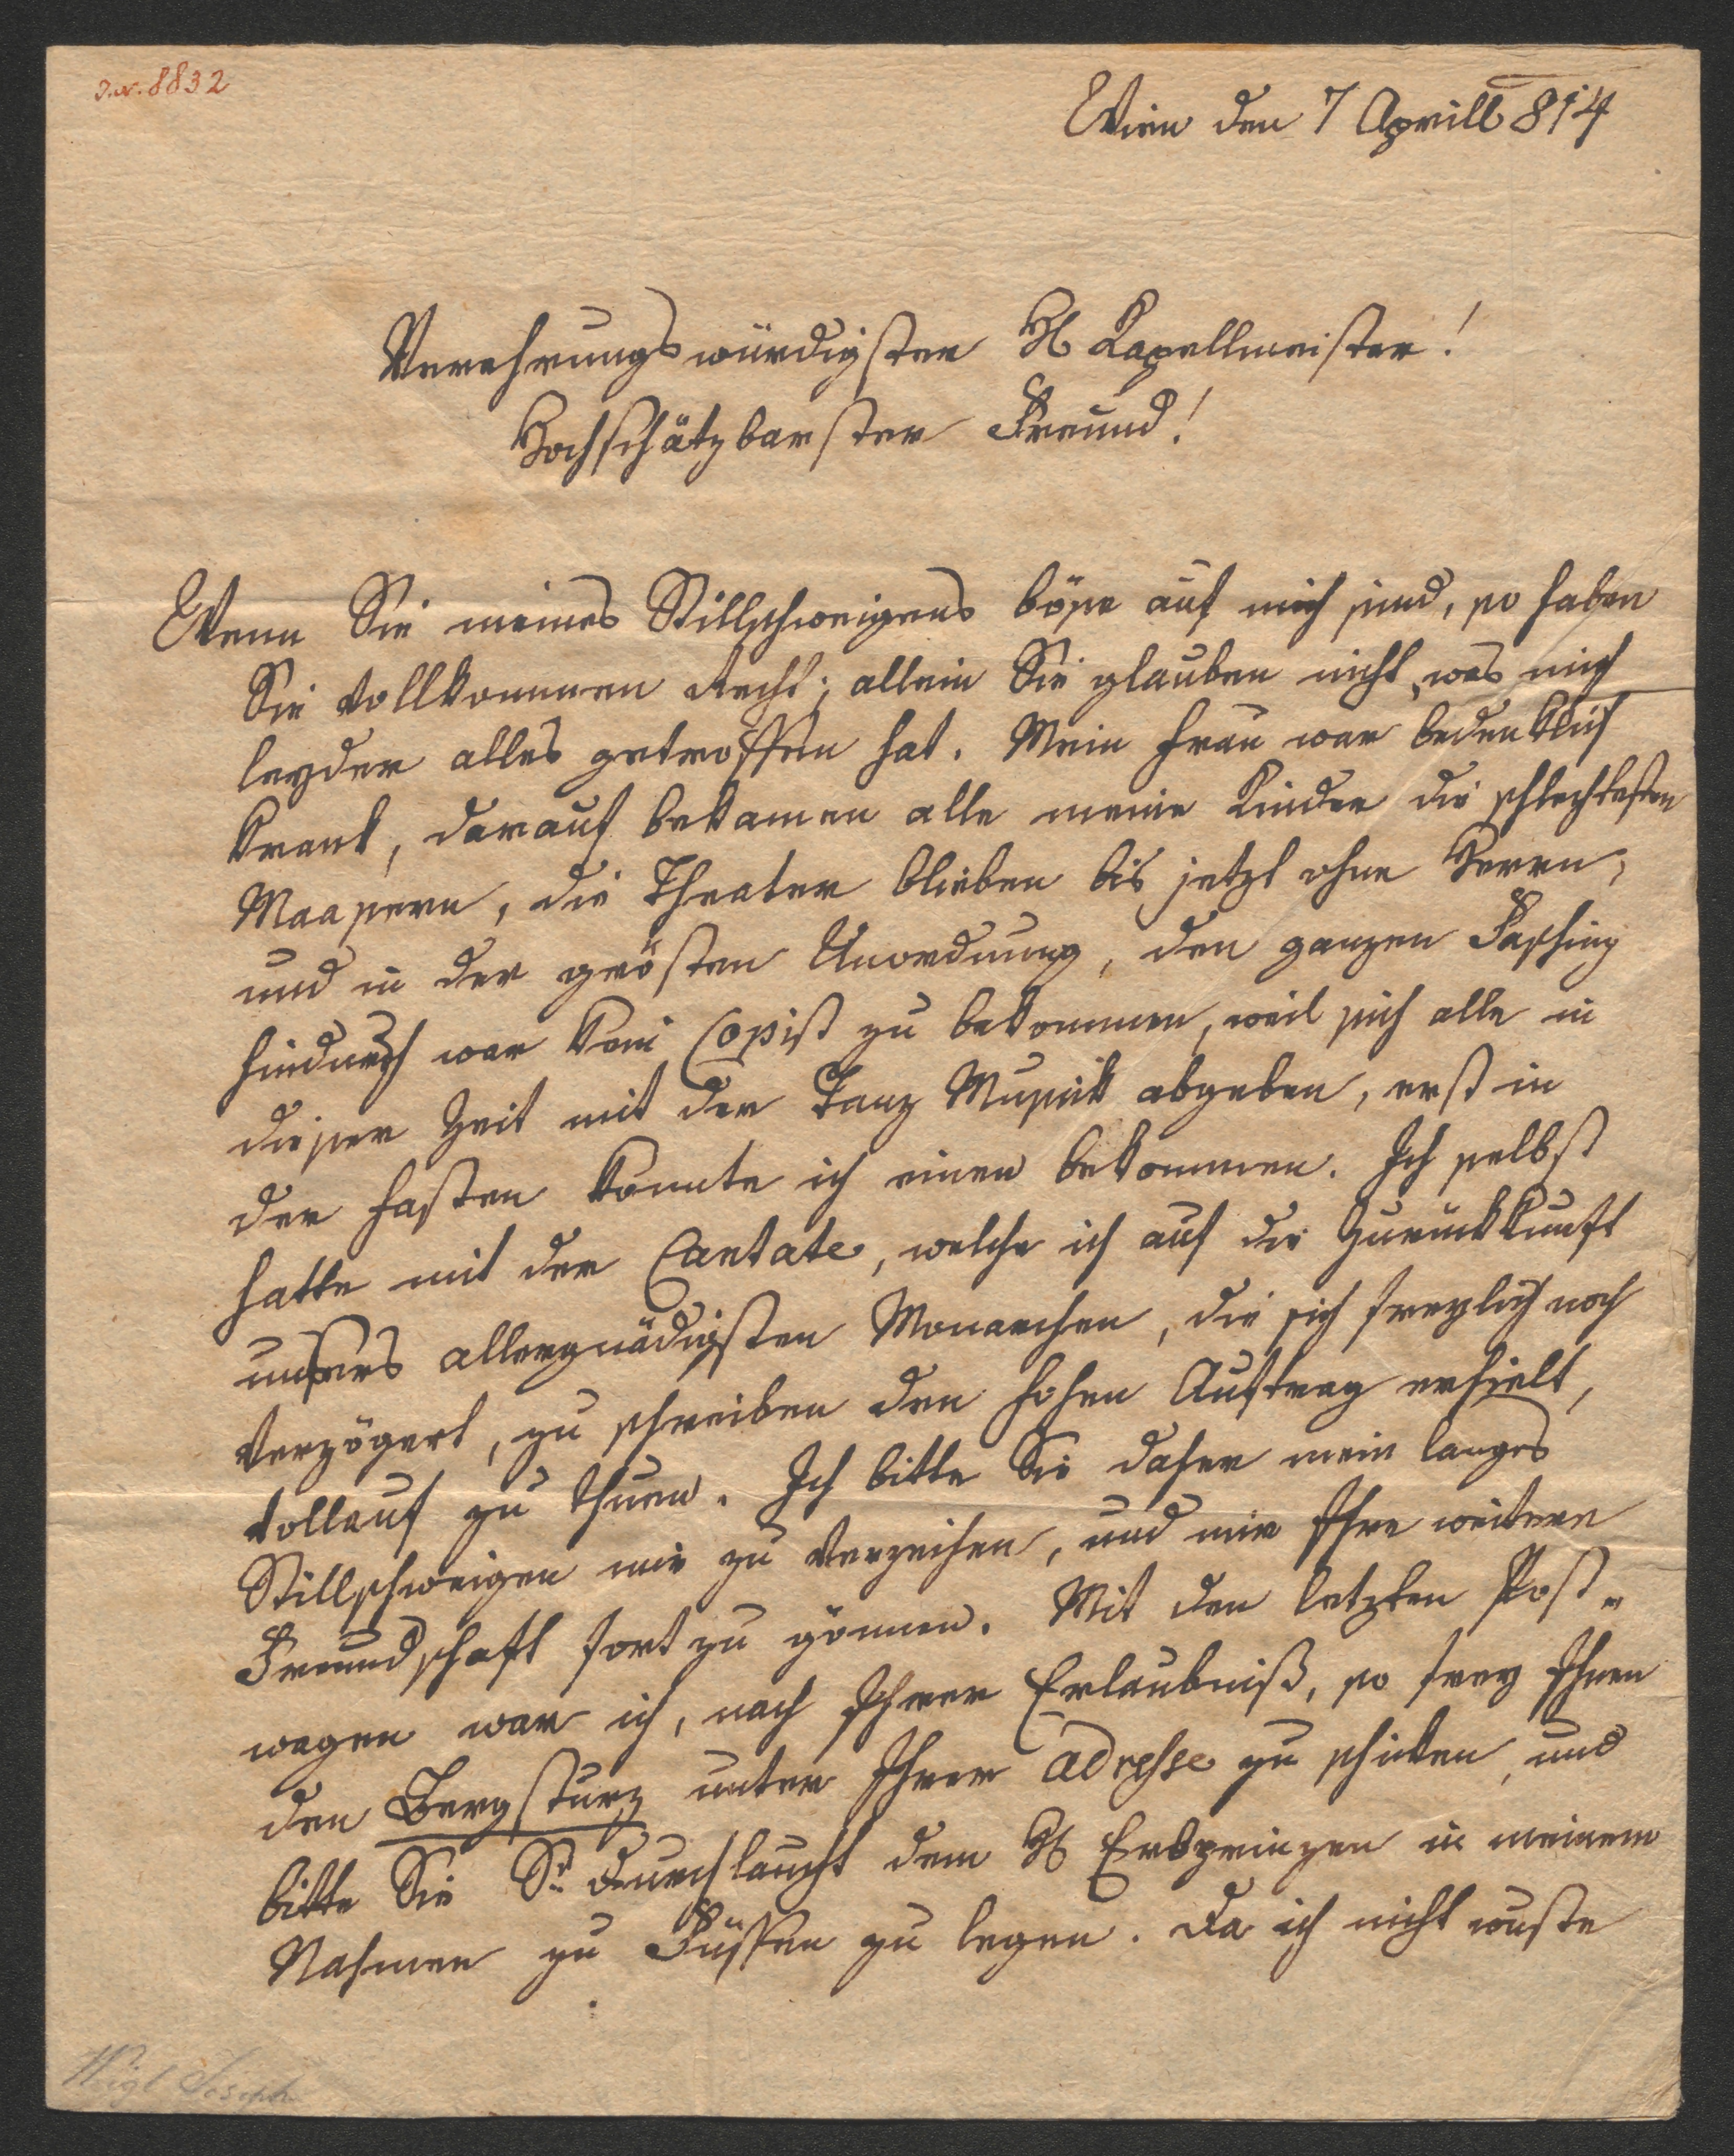 J.N. 8832
Wien den 7 Aprill 814
Verehrungswürdigster H Kapellmeister!
Hochschätzbarster Freund!
Wenn Sie meines Stillschweigens böse auf mich sind, so haben
Sie vollkommen Recht; allein Sie glauben nicht, was mich
leyder alles getroffen hat. Mein Frau war bedenklich
krank, darauf bekamen alle meine Kinder die schlechtesten
Maasern, die Theater blieben bis jetzt ohne Herrn,
und in der grösten Unordnung, den ganzen Fasching
hindurch war kein Copist zu bekommen, weil sich alle in
dieser Zeit mit der Tanz Musik abgeben, erst in
der Fasten konnte ich einen bekommen. Ich selbst
hatte mit der Cantate, welche ich auf die Zurückkunft
unsers allergnädigsten Monarchen, die sich freylich noch
verzögert, zu schreiben den hohen Auftrag erhielt,
vollauf zu thuen. Ich bitte Sie daher mein langes
Stillschweigen mir zu verzeihen, und mir Ihre weitere
Freundschaft fort zu gönnen. Mit den letzten Post-
wagen war ich, nach Ihrer Erlaubniß, so frey Ihnen
den Bergsturz unter Ihrer adresse zu schicken, und
bitte Sie Sr Durchlaucht dem H Erbprinzen in meinem
Nahmen zu Füssen zu legen. Da ich nicht wuste
Weigl Joseph